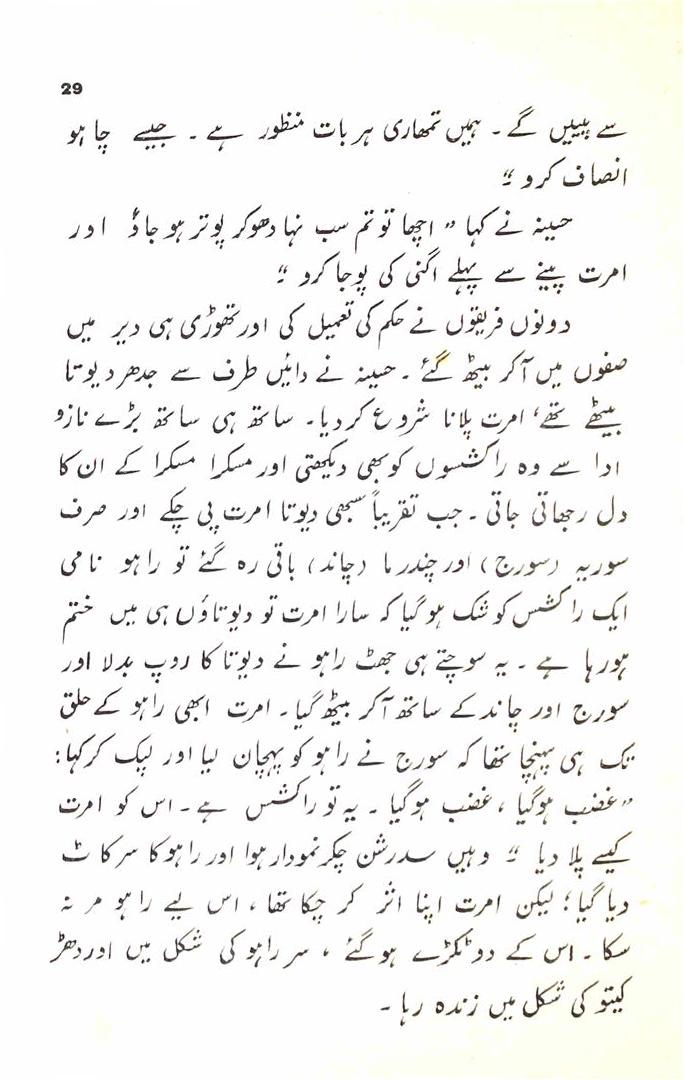 29
سے پییں گے ۔ ہمیں تمھاری ہر بات منظور ہے ۔ جیسے چاہو
انصاف کرو ۔"
حسینہ نے کہا " اچھا تو تم سب نہا دھو کر پوتر ہو جاؤ اور
امرت پینے سے پہلے اگنی کی پوجا کرو ۔"
دونوں فریقوں نے حکم کی تعمیل کی اور تھوڑی ہی دیر میں
صفوں میں آکر بیٹھ گئے ۔ حسینہ نے دائیں طرف سے جدھر دیوتا
بیٹھے تھے، امرت پلانا شروع کر دیا۔ ساتھ ہی ساتھ بڑے نازو
ادا سے وہ راکشسوں کو بھی دیکھتی اور مسکرا مسکرا کے ان کا
دل رجھاتی جاتی ۔ جب تقریباً سبھی دیوتا امرت پی چکے اور صرف
سوریہ (سورج) اور چندرما (چاند) باقی رہ گئے تو راہو نامی
ایک راکشس کو شک ہو گیا کہ سارا امرت تو دیوتاؤں ہی میں ختم
ہو رہا ہے ۔ یہ سوچتے ہی جھٹ راہو نے دیوتا کا روپ بدلا اور
سورج اور چاند کے ساتھ آکر بیٹھ گیا۔ امرت ابھی راہو کے حلق
تک ہی پہنچا تھا کہ سورج نے راہو کو پہچان لیا اور لپک کر کہا:
"غضب ہو گیا ، غضب ہو گیا ۔ یہ تو راکشس ہے۔ اس کو امرت
کیسے پلا دیا ۔" وہیں سدرشن چکر نمودار ہوا اور راہو کا سر کاٹ
دیا گیا؛ لیکن امرت اپنا اثر کر چکا تھا ، اس لیے راہو مر نہ
سکا ۔ اس کے دو ٹکڑے ہو گئے ، سر راہو کی شکل میں اور دھڑ
کیتو کی شکل میں زندہ رہا ۔